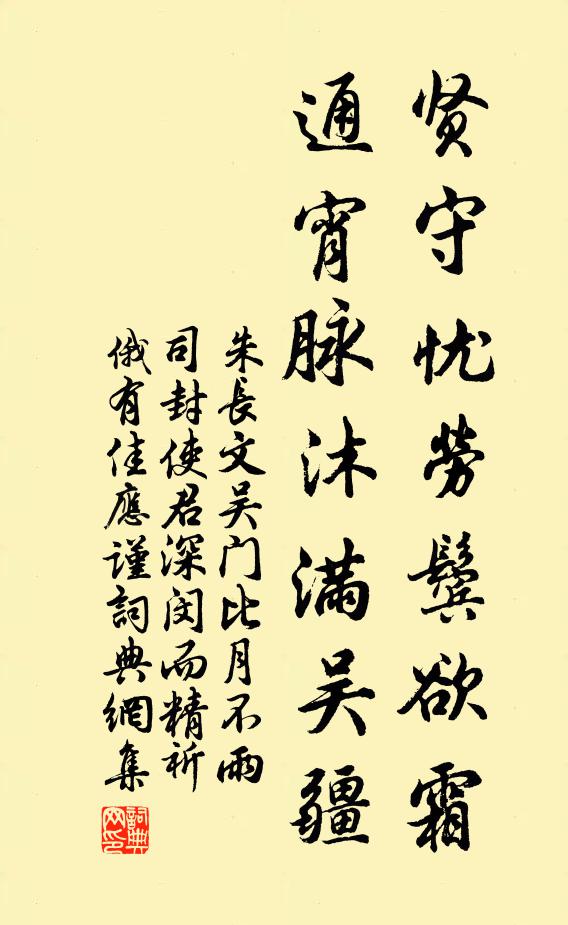 贤守忧劳鬓欲霜
通宵脉沐满吴疆
朱長文吴门比月不雨
司封使君深闵而精祈
俄有佳應谨詞典網集
詞典网印